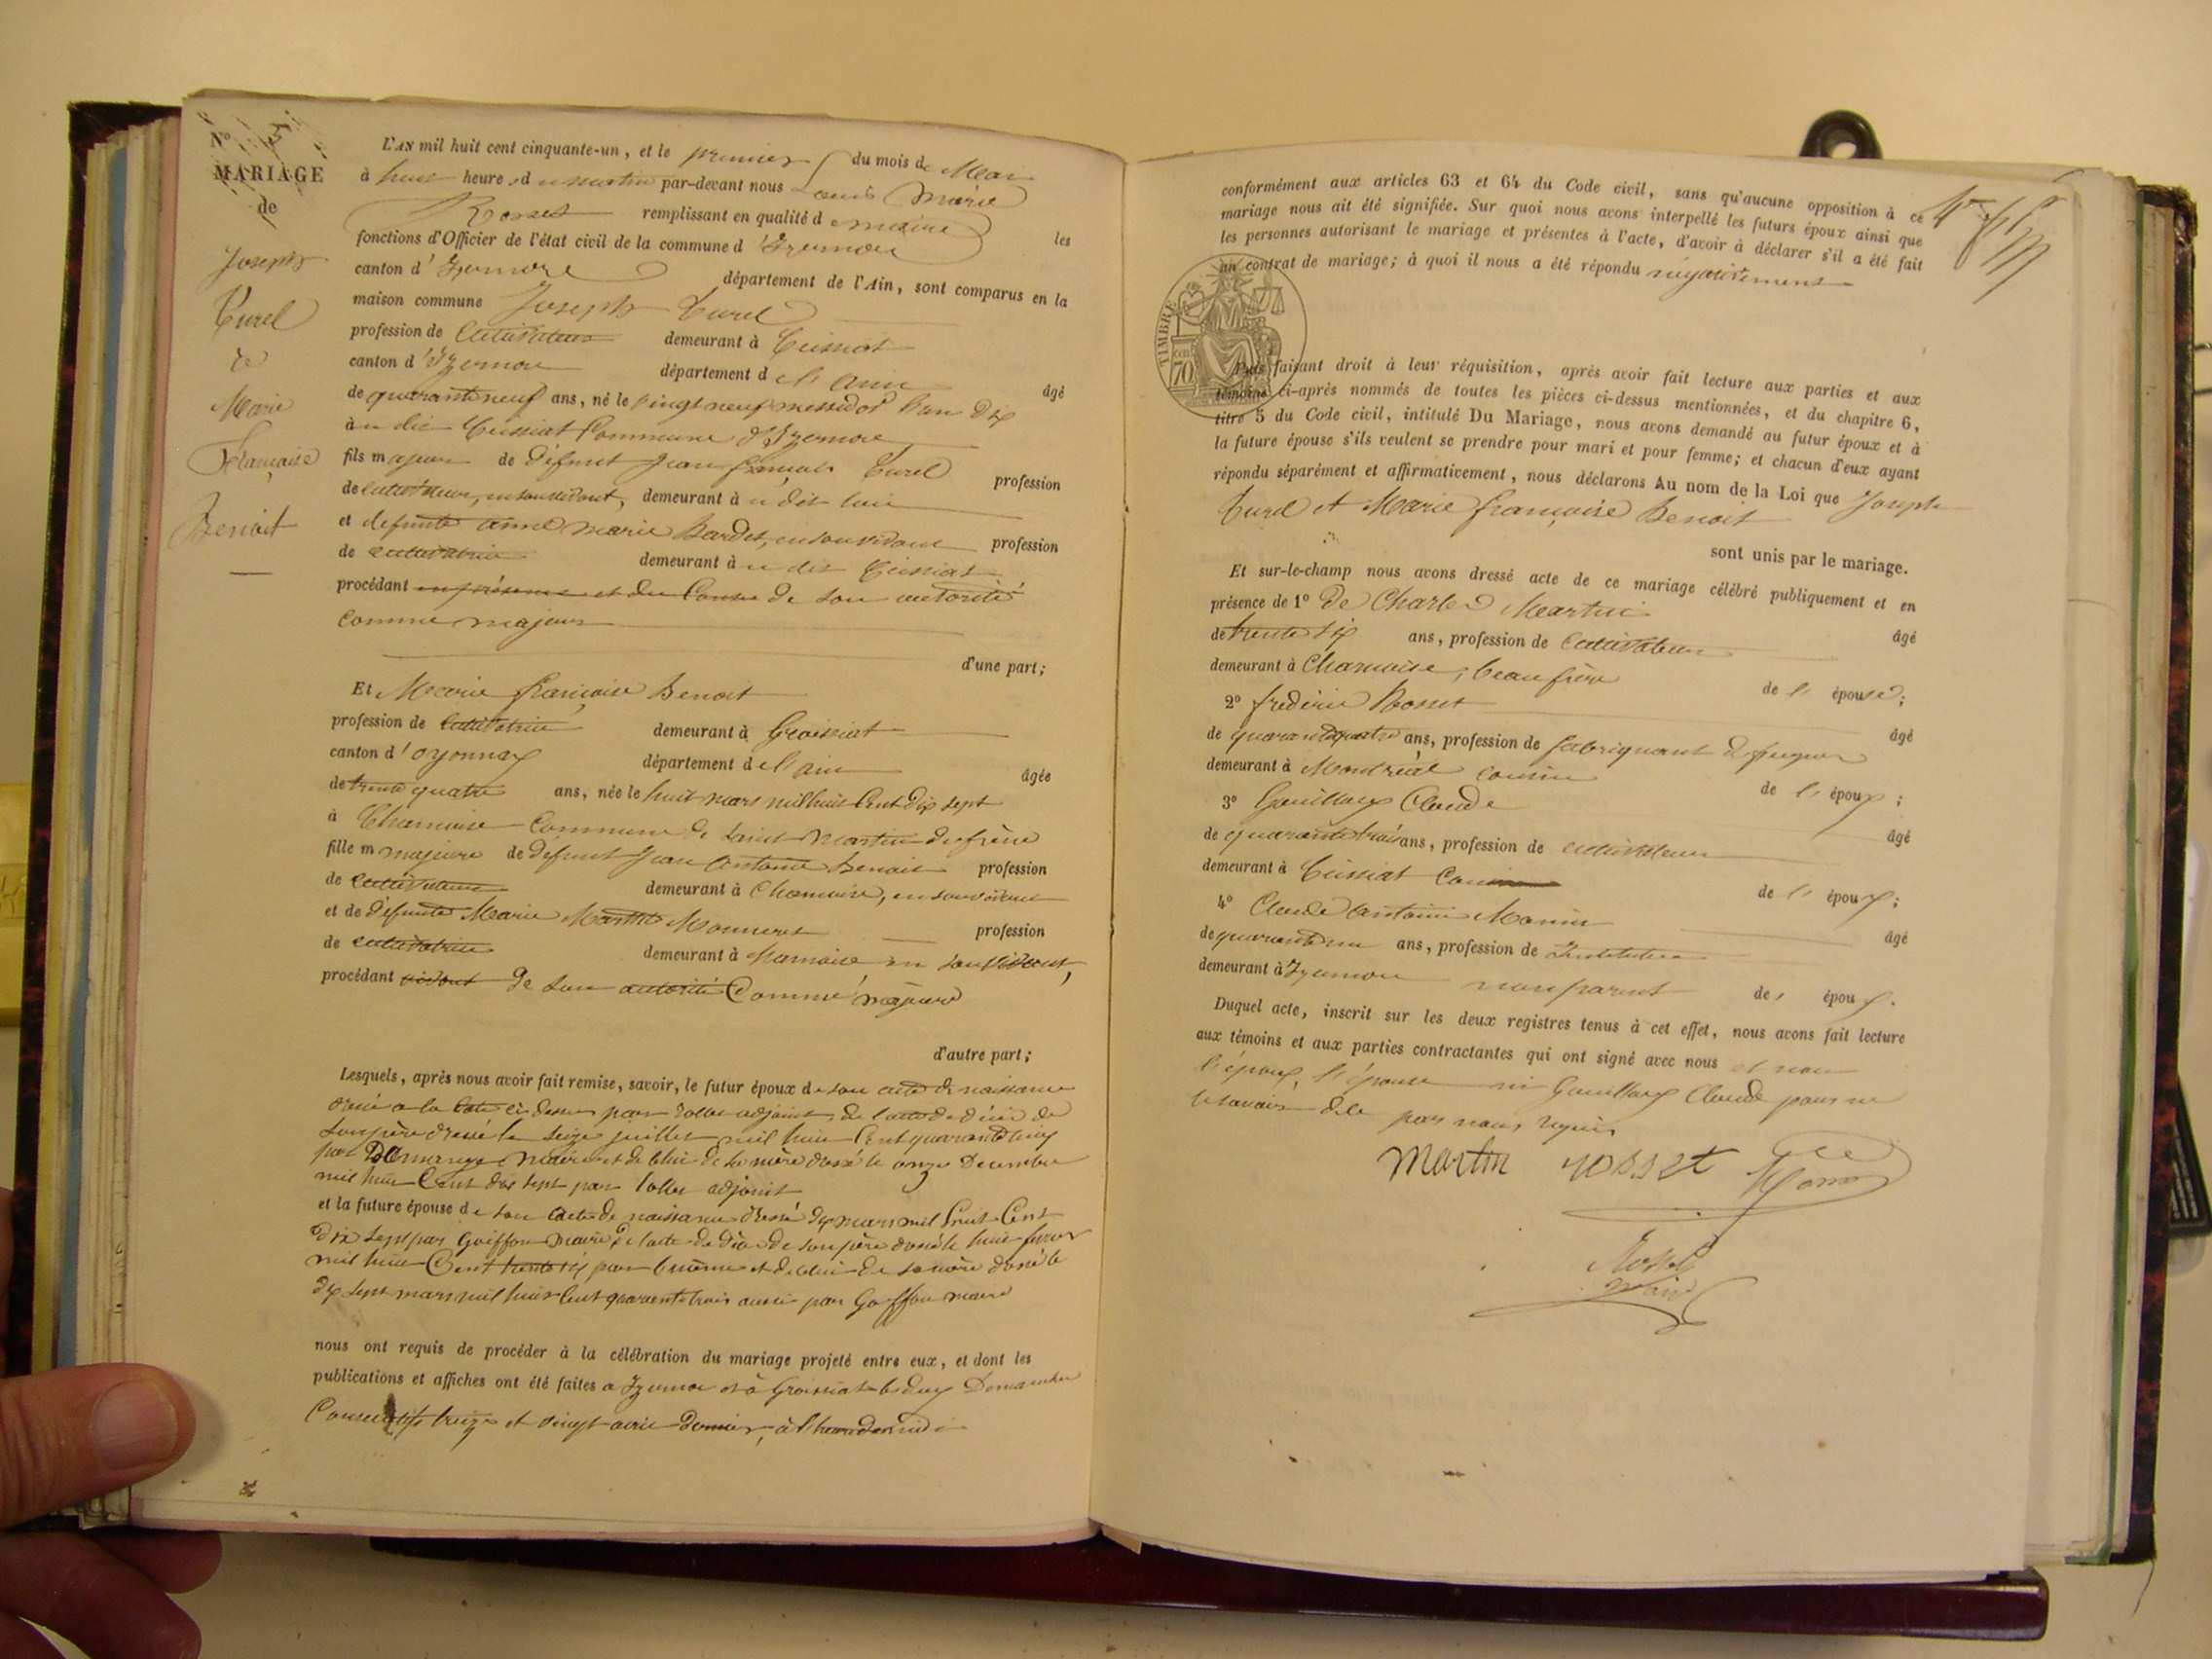 N°
MARIAGE
de
Joseph
Turel
&
Marie
Françoise
Benoit
L'AN mil huit cent cinquante-un, et le premier du mois de Mai
à huit heures du matin par-devant nous Louis Marie
Rosset remplissant en qualité de maire les
fonctions d'Officier de l'état civil de la commune d'Izernore
canton d'Izernore département de l'Ain, sont comparus en la
maison commune Joseph Turel
profession de Cultivateur demeurant à Ceissiat
canton d'Izernore département de l'Ain âgé
de quarante neuf ans, né le vingt neuf messidor l'an Dix
à u dit Ceissiat Commune d'Izernore
fils majeur de défunt Jean françois Turel profession
de cultivateur, en son vivant, demeurant à u dit lieu
et defunte anne marie Bardet, en son vivant profession
de cultivatrice demeurant à u dit Ceissiat
procédant de son autorité
Comme majeur
d'une part;
Et Marie françoise Benoit
profession de Cultivatrice demeurant à Groissiat
canton d'oyonnax département de l'ain âgée
de trente quatre ans, née le huit mars mil huit Cent dix sept
à Chamoise Commune de Saint Martin du frène
fille majeure de defunt Jean Antoine Benoit profession
de Cultivateur demeurant à Chamoise, en son vivant
et de défunte Marie Monneret profession
de cultivatrice demeurant à Chamoise en son vivant,
procédant de son autorité Comme majeure
d'autre part;
Lesquels, après nous avoir fait remise, savoir, le futur époux de son acte de naissance
dressé a la date ci dessus par adjoint, de l'acte de décès de
son père dressé le seize juillet mil huit Cent quarante
par maire et de celui de sa mère dressé le onze Décembre
mil huit Cent dix sept par adjoint
et la future épouse de son acte de naissance dressé dix mars mil huit Cent
dix sept par Goiffon maire, de l'acte de décès de son père dressé le huit
mil huit Cent trente six par le même et de celui de sa mère dressé le
dix sept mars mil huit Cent quarante trois aussi par Goiffon maire
nous ont requis de procéder à la célébration du mariage projeté entre eux, et dont les
publications et affiches ont été faites a Izernore et à Groissiat les deux Dimanches
Consecutifs treize et vingt avril dernier, à l'heure de midi
conformément aux articles 63 et 64 du Code civil, sans qu'aucune opposition à ce
mariage nous ait été signifiée. Sur quoi nous avons interpellé les futurs époux ainsi que
les personnes autorisant le mariage et présentes à l'acte, d'avoir à déclarer s'il a été fait
un contrat de mariage; à quoi il nous a été répondu négativement
TIMBRE
70 cent
Puis faisant droit à leur réquisition, après avoir fait lecture aux parties et aux
témoins ci-après nommés de toutes les pièces ci-dessus mentionnées, et du chapitre 6,
titre 5 du Code civil, intitulé Du Mariage, nous avons demandé au futur époux et à
la future épouse s'ils veulent se prendre pour mari et pour femme; et chacun d'eux ayant
répondu séparément et affirmativement, nous déclarons Au nom de la Loi que Joseph
Turel et Marie françoise Benoit
sont unis par le mariage.
Et sur-le-champ nous avons dressé acte de ce mariage célébré publiquement et en
présence de 1° De Charles Martin âgé
de trente six ans, profession de Cultivateur
demeurant à Chamoise, beau frère de l'épouse;
2° frédéric Rosset âgé
de quarante quatre ans, profession de fabriquant de peignes
demeurant à Montréal cousin de l'époux;
3° Gouilloux Claude âgé
de quarante trois ans, profession de cultivateur
demeurant à Ceissiat Cousin de l'époux;
4° Claude Antoine Monin âgé
de quarante un ans, profession de Instituteur
demeurant à Izernore non parent des époux.
Duquel acte, inscrit sur les deux registres tenus à cet effet, nous avons fait lecture
aux témoins et aux parties contractantes qui ont signé avec nous et non
l'époux, l'épouse ni Gouilloux Claude pour ne
le savoir de ce par nous requis
Martin rosset Monin
Rosset
maire